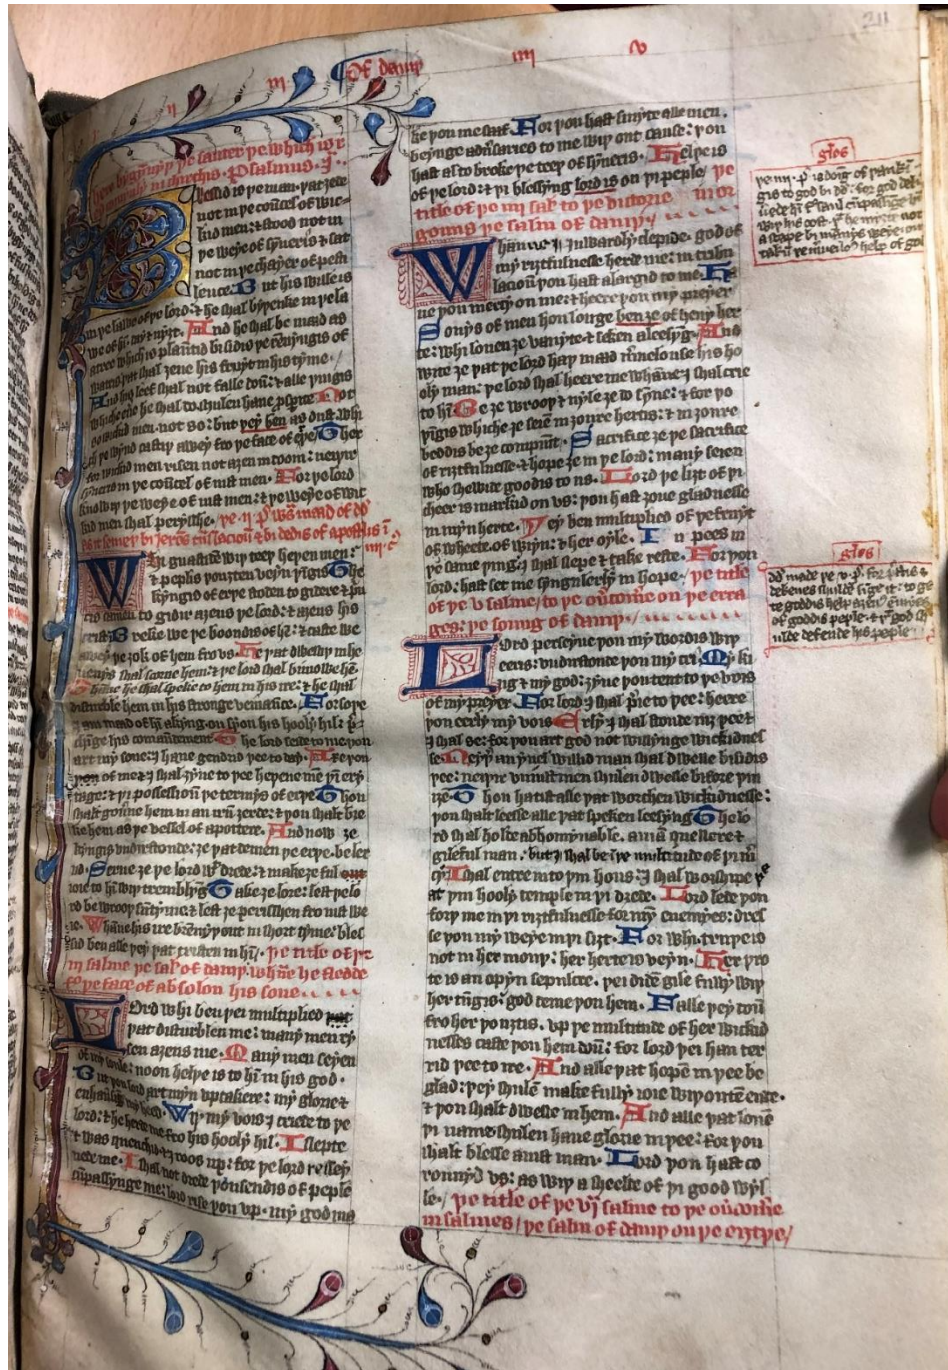 i ii iii Of dauiþ iiii v
211
here bigynniþ þe sauter þe which is r
comunly in chirchis. Psalmus. i.
Blessid is þe man. þat ȝede
not in þe coūcel of wic-
kid men: & stood not in
þe weye of synneris & sat
not in þe chayer of pesti
lence. But his wille is
in þe lawe of þe lord: & he shal byþenke in þe la
we of hī. day & nyȝt. And he shal be maad as
a tree which is plauntid bisidis þe rēnyngis of
watris þat shal ȝeue his fruyt in his tyme /
And his leef shal not falle doū: & alle þingis
whiche euere he shal do shulen haue pspite Not
so wickid men. not so: but þey ben as dust whi
ch þe wynd castiþ awey fro þe face of erþe Ther
for wickid men risen not aȝen in doom: neþir
synneris in þe coūcel of iust men. For þe lord
knowiþ þe weye of iust men: & þe weye of wic
kid men shal perysshe. / þe ii p̄. was maad of dd
as it semeþ bi Jeroms translacioū & bi dedis of apostlis ī iiii c̄
Whi gnastide wiþ teeþ heþen men:
& peplis þouȝten veyn þīgis The
kyngis of erþe stoden to gidere & prī
cis camen to gidir aȝens þe lord: & aȝens his
crist Breke we þe boondis of hē: & caste we
awey þe ȝok of hem fro vs. He þat dwelliþ in he
uenys shal scorne hem: & þe lord shal bimowe hē.
Thanne he shal speke to hem in his ire: & he shal
disturble hem in his stronge veniaunce. Forsoþe
I am maad of hī a kyng on syon his hooly hil: p̄
chīge his comaundement The lord seide to me þou
art my sone: I haue gendrid þee to day. Axe þou
of me & I shal ȝyue to þee heþene mē þī ery
tage: & þi possessioū þe termys of erþe Thou
shalt gouerne hem in an irū ȝerde: & þou shalt bre
ke hem as þe vessel of a pottere. And now ȝe
kyngis vndirstonde: ȝe þat demen þe erþe. be ler
nd. Serue ȝe þe lord wiþ drede: & make ȝe ful out
ioie to hī wiþ tremblyng Take ȝe lore: lest þe lo
rd be wrooþ sūtyme: & lest ȝe perisshen fro iust we
ie. Whāne his ire brēnyþ out in short tyme: bles
sid ben alle þey þat tristen in hī: / þe title of þe
iii salme þe salm of dauiþ. whāne he fledde
fro þe face of absolon his sone . . . .
Lord whi ben þei multiplied
þat disturblen me: many men ry
sen aȝens me. Many men seyen
of my soule: noon helþe is to hī in his god.
But þou lord art myn vptakere: my glorie &
enhaūsīg my heed. Wiþ my vois I criede to þe
lord: & he herde me fro his hooly hil. I slepte
& was quenchid & I roos vp: for þe lord resseyue
uede me. I shal not drede þousendis of peple
cūpassynge me: lord rise þou vp. my god ma
ke þou me saaf For þou hast smyte alle men.
beynge aduersaries to me wiþ out cause: þou
hast al to broke þe teeþ of synneris. Helþe is
of þe lord: & þi blessyng lord is on þi peple / þe
title of þe iiii salm to þe victorie in or
gouns þe salm of dauiþ /
Whanne I inwardly clepide. god of
my riȝtfulnesse herde me: in tribu
lacioū þou hast alargid to me. Ha
ue þou mercy on me: & heere þou my preyer
Sonys of men hou longe ben ȝe of heuy her
te: whi louen ȝe vanyte & seken a leesyng. And
wite ȝe þat þe lord haþ maad merueilouse his ho
oly man: þe lord shal heere me whāne I shal crie
to hī Be ȝe wrooþ & nyle ȝe to synne: & for þo
þīgis whiche ȝe seiē in ȝoure hertis: & in ȝoure
beddis be ȝe compunct. Sacrifice ȝe þe sacrifice
of riȝtfulnesse & hope ȝe in þe lord: many seien
who shewide goodis to us. Lord þe liȝt of þi
cheer is markid on vs: þou hast ȝoue gladnesse
in myn herte. Þey ben multiplied of þe fruyt
of whete. of wiyn: & her oyle. In pees in
þe same þing: I shal slepe & take reste. For þou
lord: hast set me syngulerly in hope: / þe title
of þe v salme / to þe ouercome on þe erita
ges: þe song of dauiþ /
Lord perseyue þou my wordis wiþ
eeris: vndirstonde þou my cri. My ki
ng & my god: ȝyue þou tent to þe vois
of my preyer For lord I shal preie to þee: heere
þou eerly my vois Erly I shal stonde niȝ þee &
I shal se: for þou art god not willynge wickidnes
se Neþer an yuel willid man shal dwelle bisidis
þee: neþir vniust men shulen dwelle bifore þin
iȝē. Thou hatist alle þat worchen wickidnesse:
þou shalt leese alle þat speken leesyng The lo
rd shal holde abhomynable. a man quellere &
gileful man. but I shal be in þe multitude of þi mer
cy: I shal entre in to þin hous: I shal worshipe þe
at þin hooly temple in þi drede. Lord lede þou
forþ me in þi riȝtfulnesse for my enemyes: dres
se þou my weye in þi siȝt. For whi. trewþe is
not in her mouþ: her herte is veyn. Her þro
te is an opyn sepulcre. þei didē gile fully wiþ
her tūgis: god deme þou hem. Falle þey doū
fro her þouȝtis. vp þe multitude of her wickid
nesses caste þou hem doū: for lord þei han ter
rid þee to ire. And alle þat hopē in þee be
glad: þey shulē make fully ioie wiþ outē ende.
& þou shalt dwelle in hem. And alle þat louē
þi name shulen haue glorie in þee: for þou
shalt blesse a iust man. Lord þou hast co
rouned vs: as wiþ a sheelde of þi good wyl
le. / þe title of þe vi salme to þe ouercome
in salmes / þe salm of dauiþ on þe eiȝtþe /
glos
þe iiii. p̄. is doīg of þankī
gis to god bi dd: for god deli
uerde hī fro saul cūpassīge hī
wiþ his oost. þt he myȝte not
ascape bi mānys weye. wiþ
outē þe merueilous help of god
glos
dd made þe v. p̄. for þis &
defenes shulde sige it: to ge
te goddis help aȝens enmyes
of goddis peple: & þt god sh
ulde defende his peple